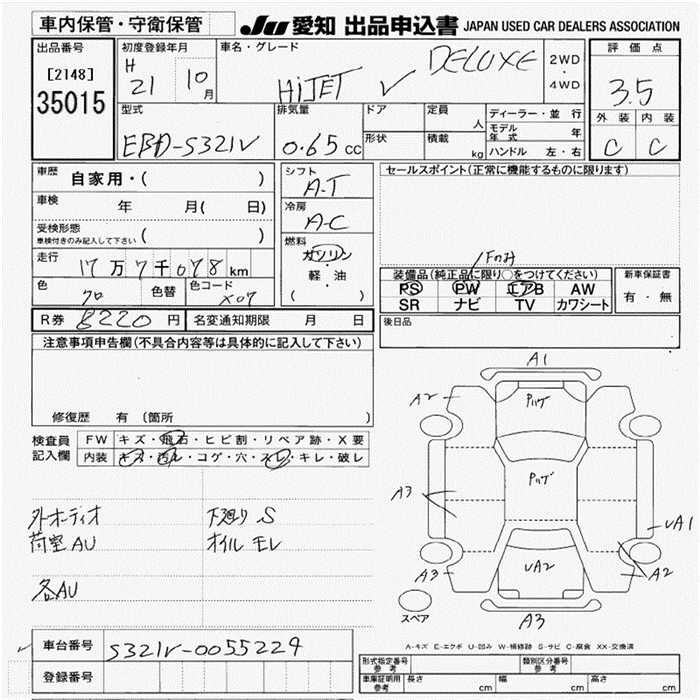 車内保管・守衛保管 JU 愛知 出品申込書 JAPAN USED CAR DEALERS ASSOCIATION
出品番号 初度登録年月 車名・グレード 評価点
[2148] H 21 10月 HiJET DELUXE 2WD・4WD 3.5
35015 外装 内装
型式 排気量 ドア 定員 人 ディーラー・並行 C C
EBD-S321V 0.65cc 形状 積載 kg モデル年式 年
ハンドル 左・右
車歴 自家用・( ) シフト A-T セールスポイント(正常に機能するものに限ります)
車検 年 月( 日) 冷房 A-C
受検形態 ( )
車検付きのみ記入して下さい
燃料 ガソリン・軽・油 ( )
走行 17万7千078km
1Fのみ
装備品(純正品に限り○をつけてください) 新車保証書
色 クロ 色替 色コード X07 PS PW エアB AW 有・無
SR ナビ TV カワシート
R券 8220円 名変通知期限 月 日 後日品
注意事項申告欄(不具合内容等は具体的に記入して下さい)
修復歴 有 (箇所 )
検査員記入欄 FW キズ・飛石・ヒビ割・リペア跡・X要
内装 キズ・汚レ・コゲ・穴・スレ・キレ・破レ
外オーディオ 下廻り S
荷室AU オイルモレ
各AU
A1
A2
A3
UA1
UA2
A3 A2
スペア A3
A-キズ E-エクボ U-凹み W-補修跡 S-サビ C-腐食 XX-交換済
車台番号 S321V-0055229
登録番号
形式指定番号 参考 類別区分番号 参考
車庫証明用 参考 長さ cm 幅 cm 高さ cm